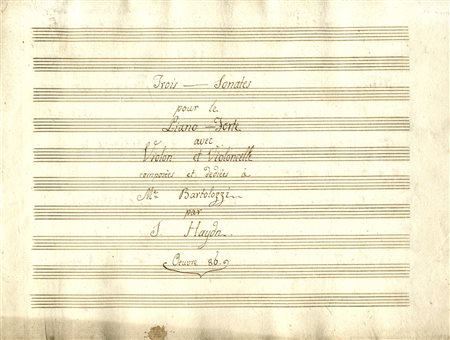 Trois — Sonates
pour le
Piano — Forte
avec
Violon et Violoncelle
composées et dediées à
Mr Bartolozzi
par
J. Haydn.
Oeuvre 86.